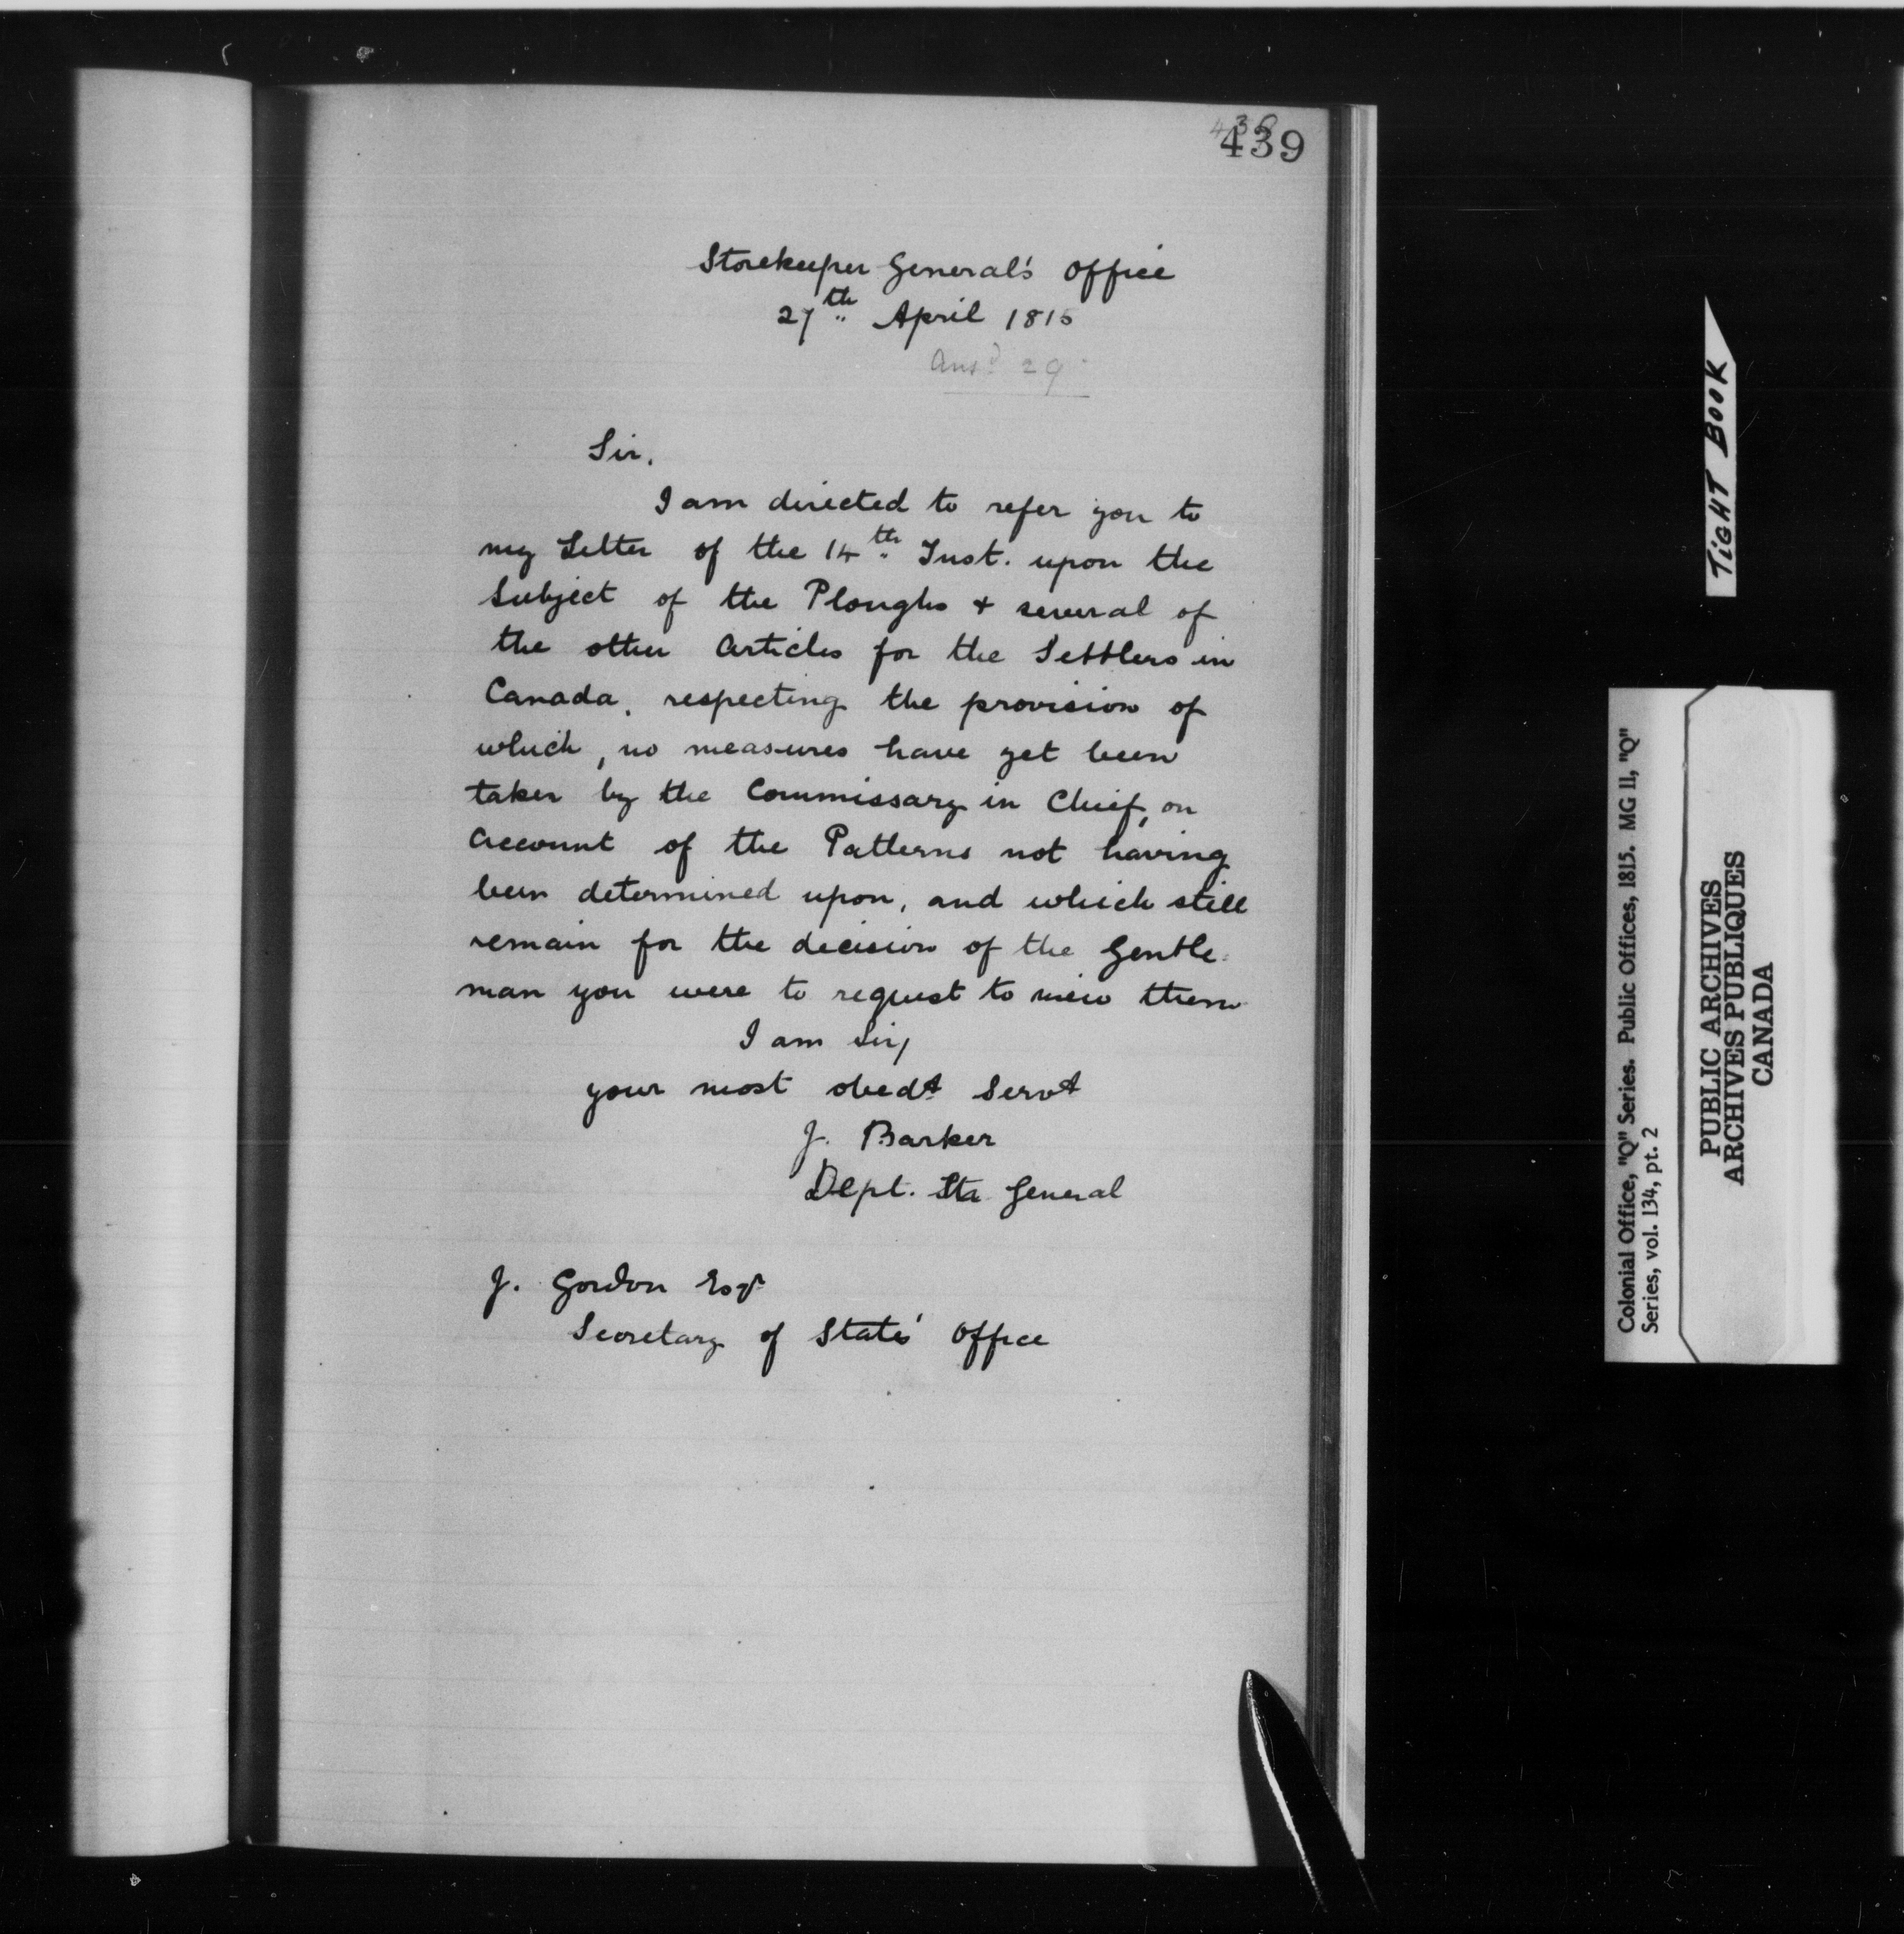 439
Storekeeper General's Office
27th April 1815
Ansd 29
Sir,
I am directed to refer you to
my Letter of the 14th Inst. upon the
Subject of the Ploughs + several of
the other Articles for the Settlers in
Canada, respecting the provision of
which, no measures have yet been
taken by the Commissary in Chief, on
account of the Patterns not having
been determined upon, and which still
remain for the decision of the Gentle=
man you were to request to view them
I am Sir,
your most obedt Servt
J. Barker
Dept. Str General
J. Gordon Esqr
Secretary of State's Office
TIGHT BOOK
Colonial Office, "Q" Series. Public Offices, 1815. MG 11, "Q"
Series, vol. 134, pt. 2
PUBLIC ARCHIVES
ARCHIVES PUBLIQUES
CANADA